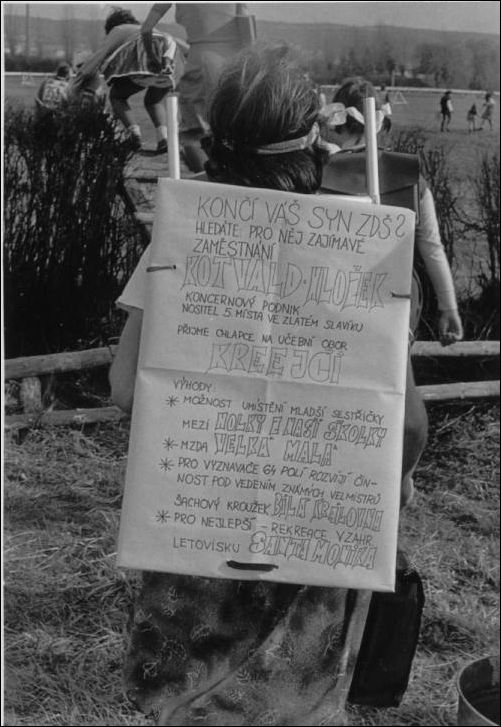 KONČÍ VÁŠ SYN ZDŠ?
HLEDÁTE PRO NĚJ ZAJÍMAVÉ
ZAMĚSTNÁNÍ
KOTVALD-HLOŽEK
KONCERNOVÝ PODNIK
NOSITEL 5. MÍSTA VE ZLATÉM SLAVÍKU
PŘIJME CHLAPCE NA UČEBNÍ OBOR
KREEJČÍ
VÝHODY:
* MOŽNOST UMÍSTĚNÍ MLADŠÍ SESTŘIČKY
MEZI HOLKY Z NAŠÍ ŠKOLKY
* MZDA VELKÁ MALÁ
* PRO VYZNAVAČE 64 POLÍ ROZVÍJÍ ČIN-
NOST POD VEDENÍM ZNÁMÝCH VELMISTRŮ
ŠACHOVÝ KROUŽEK BÍLÁ KRÁLOVNA
* PRO NEJLEPŠÍ - REKREACE V ZAHR.
LETOVISKU SANTA MONIKA